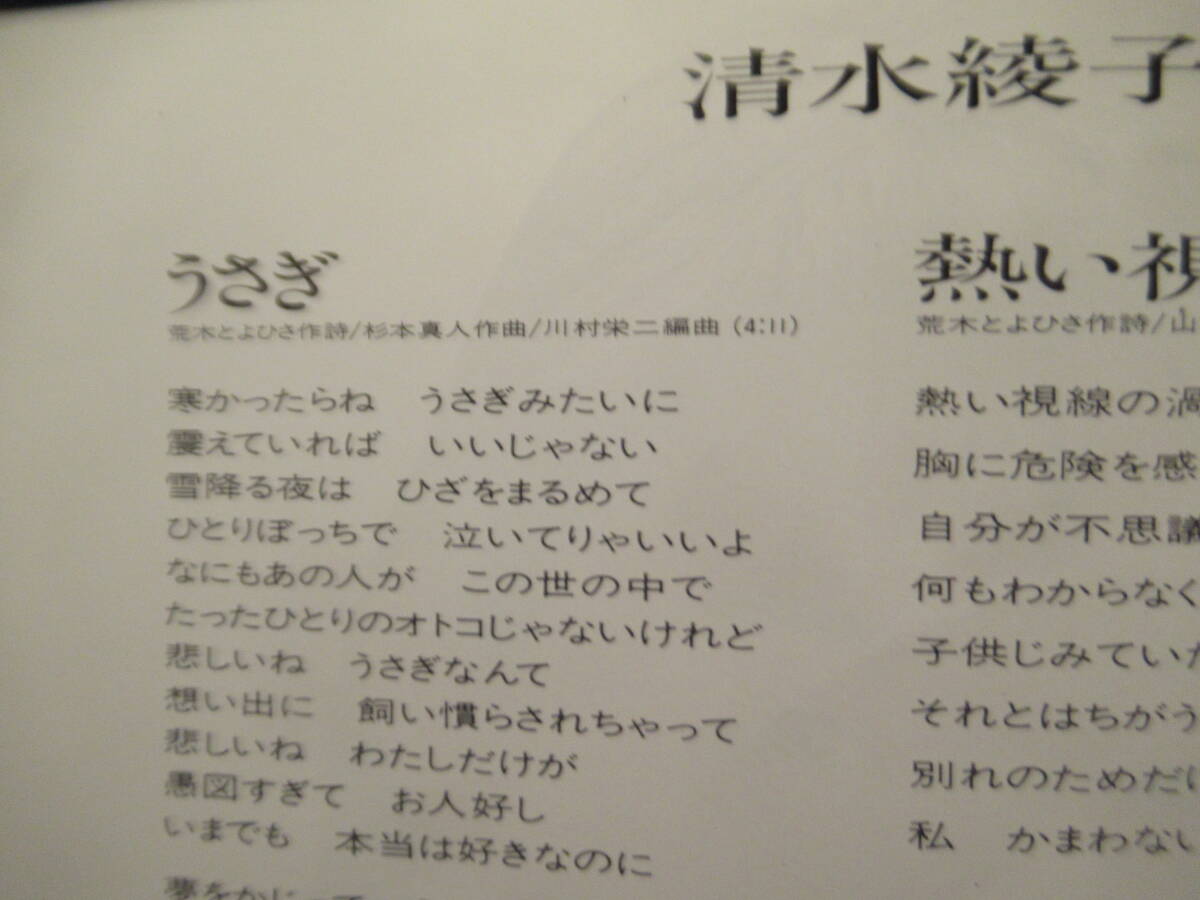 清水綾子
うさぎ
荒木とよひさ作詩/杉本真人作曲/川村栄二編曲 (4:11)
寒かったらね　うさぎみたいに
震えていれば　いいじゃない
雪降る夜は　ひざをまるめて
ひとりぼっちで　泣いてりゃいいよ
なにもあの人が　この世の中で
たったひとりのオトコじゃないけれど
悲しいね　うさぎなんて
想い出に　飼い慣らされちゃって
悲しいね　わたしだけが
愚図すぎて　お人好し
いまでも　本当は好きなのに
夢をかじって
熱い視
荒木とよひさ作詩/山
熱い視線の渦
胸に危険を感
自分が不思議
何もわからなく
子供じみていた
それとはちがう
別れのためだけ
私　かまわない